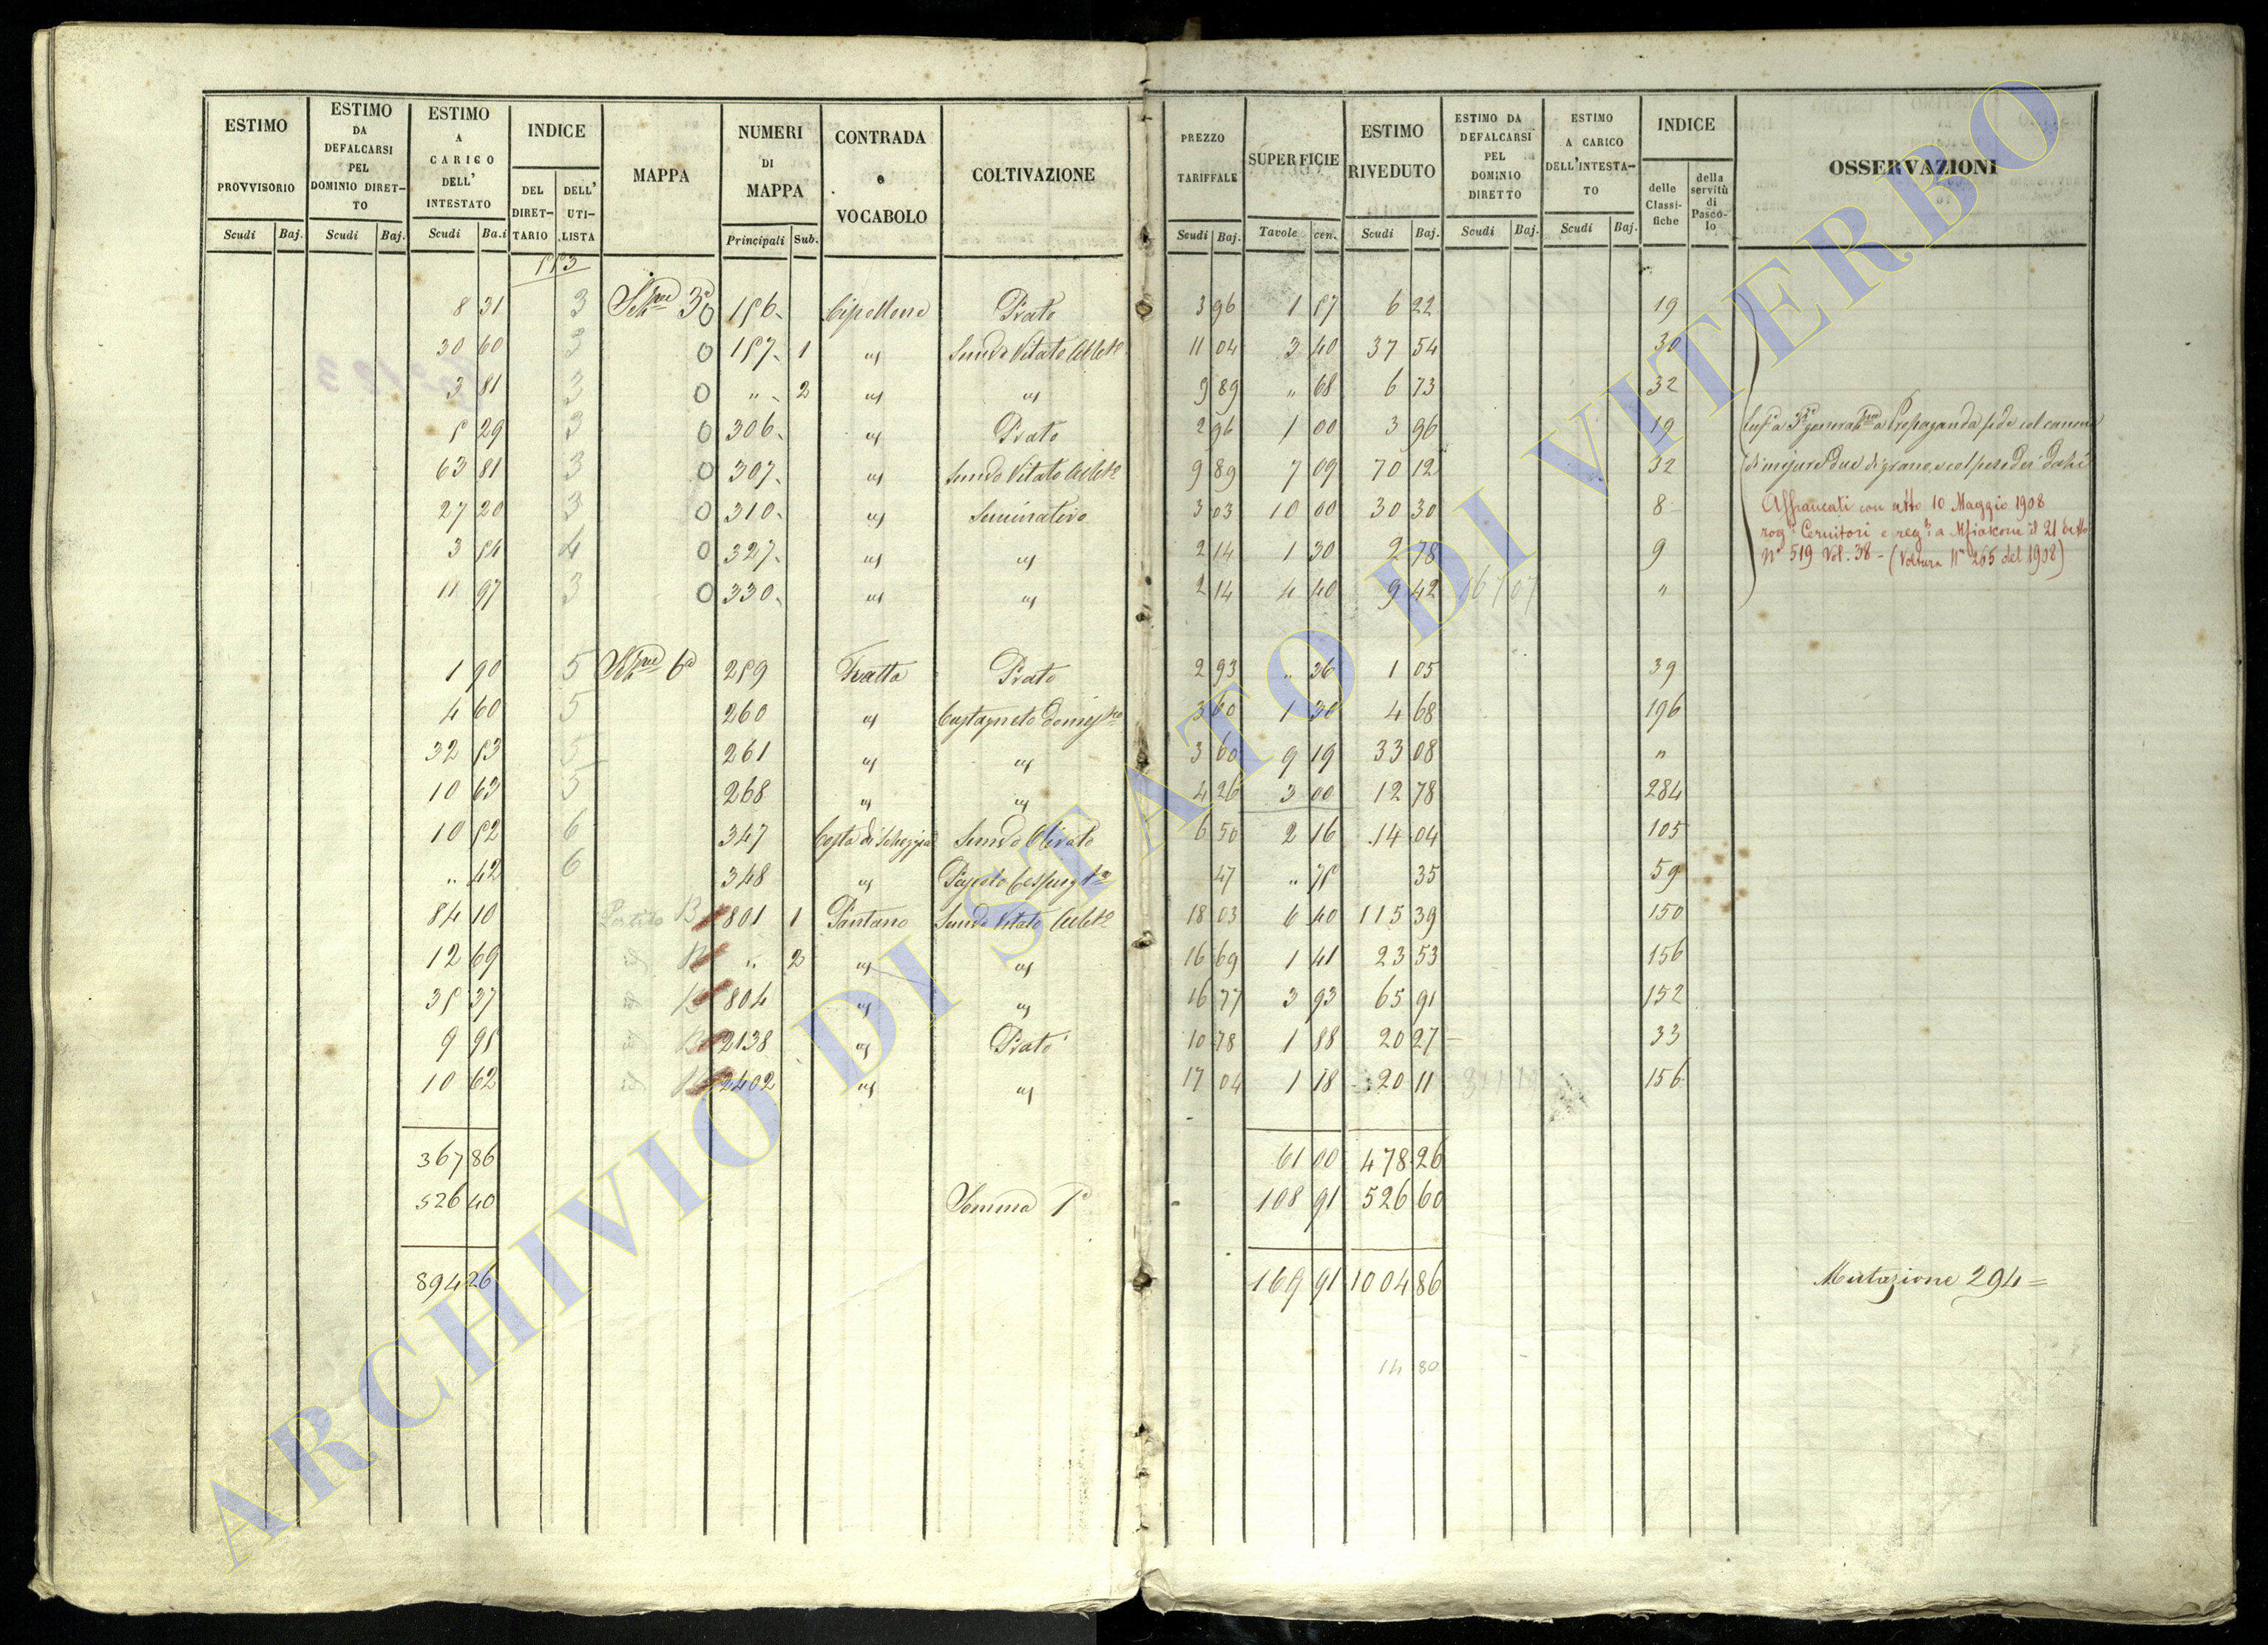 ESTIMO PROVVISORIO
ESTIMO DA DEFALCARSI PEL DOMINIO DIRET-TO
ESTIMO A CARICO DELL' INTESTATO
INDICE
DEL DIRET-TARIO
DELL' UTI-LISTA
MAPPA
NUMERI DI MAPPA
CONTRADA e VOCABOLO
COLTIVAZIONE
PREZZO TARIFFALE
SUPERFICIE
ESTIMO RIVEDUTO
ESTIMO DA DEFALCARSI PEL DOMINIO DIRETTO
ESTIMO A CARICO DELL'INTESTA-TO
INDICE
delle Classi-fiche
della servitù di Pasco-lo
OSSERVAZIONI
Scudi Baj. Scudi Baj. Scudi Ba.i Principali Sub. Scudi Baj. Tavole cen. Scudi Baj. Scudi Baj. Scudi Baj.
8 31 3 0 156 Cipollone Prato 3 96 1 57 6 22 19
30 60 3 0 157 1 11 04 3 40 37 54 30
3 81 3 0 " 2 9 89 " 68 6 73 32
5 29 3 0 306 Prato 2 96 1 00 3 96 19
63 81 3 0 307 9 89 7 09 70 12 32
27 20 3 0 310 Seminativo 3 03 10 00 30 30 8
3 54 4 0 327 2 14 1 30 2 78 9
11 97 3 0 330 2 14 4 40 9 42 "
a Propaganda fede col canone
Affrancati con atto 10 Maggio 1908
rog.i Cernitori e reg.i a Mfiascone il 21 detto
N° 519 Vol. 38 - (Voltura N° 265 del 1908)
1 90 5 259 Fratta Prato 2 93 " 36 1 05 39
4 60 5 260 3 60 1 30 4 68 196
32 53 5 261 3 60 9 19 33 08 "
10 63 5 268 4 26 3 00 12 78 284
10 52 6 347 Olivato 6 50 2 16 14 04 105
" 42 6 348 47 " 75 35 59
84 10 801 1 Pantano 18 03 6 40 115 39 150
12 69 " 2 16 69 1 41 23 53 156
35 37 804 16 77 3 93 65 91 152
9 95 2138 Prato 10 78 1 88 20 27 33
10 62 2402 17 04 1 18 20 11 156
367 86 61 00 478 26
526 40 Somma 108 91 526 60
894 26 169 91 1004 86 Mutazione 294 =
14 80
ARCHIVIO DI STATO DI VITERBO